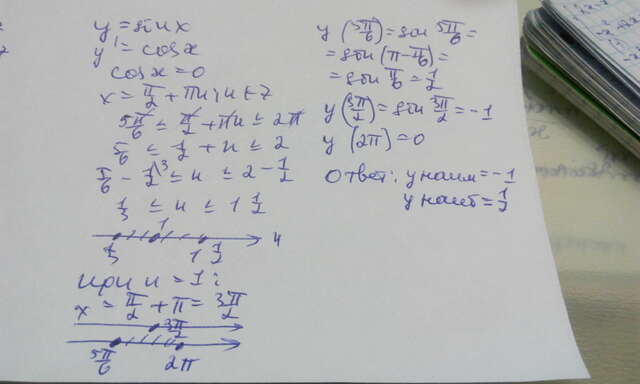 y = sin x
y' = cos x
cos x = 0
x = π/2 + πn; n ∈ Z
5π/6 ≤ π/2 + πn ≤ 2π
5/6 ≤ 1/2 + n ≤ 2
5/6 - 1/2 \3 ≤ n ≤ 2 - 1/2
1/3 ≤ n ≤ 1 1/2
1
1/3 1 1/2 n
при n = 1:
x = π/2 + π = 3π/2
3π/2
5π/6 2π
y (5π/6) = sin 5π/6 =
= sin (π - π/6) =
= sin π/6 = 1/2
y (3π/2) = sin 3π/2 = -1
y (2π) = 0
Ответ: y наим = -1
y наиб = 1/2